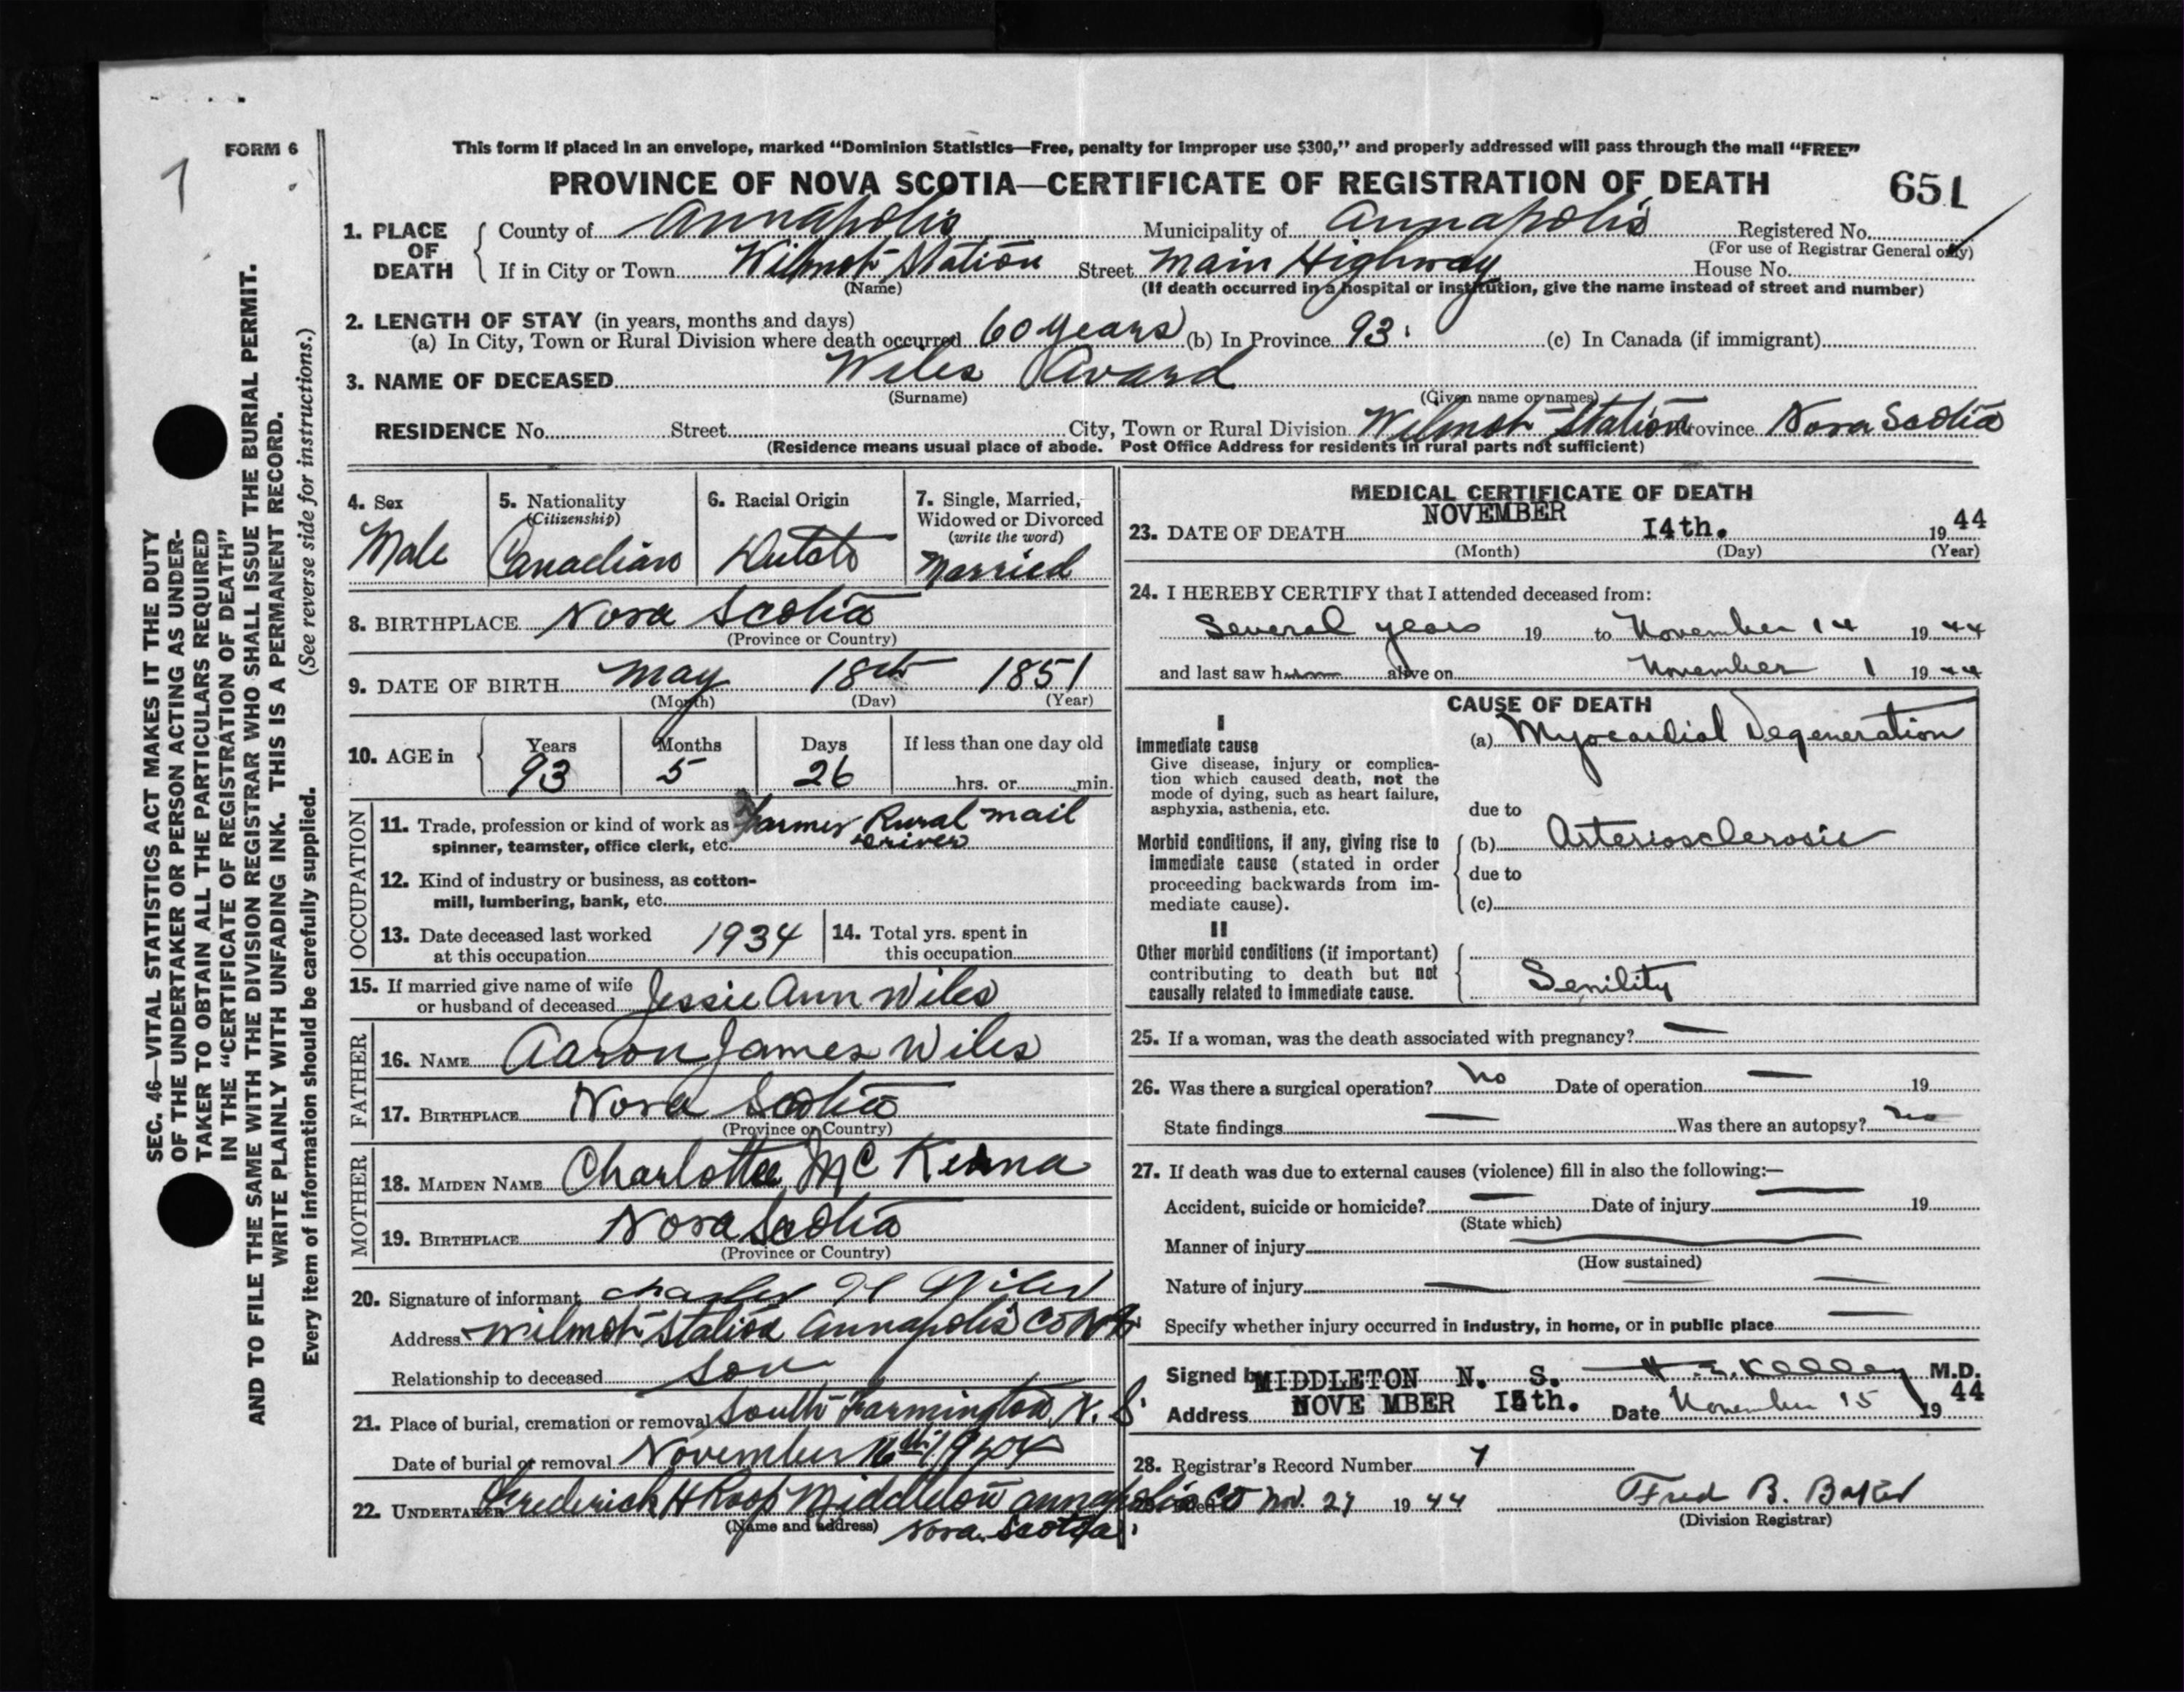 FORM 6
7
This form if placed in an envelope, marked “Dominion Statistics—Free, penalty for improper use $300,” and properly addressed will pass through the mail “FREE”
PROVINCE OF NOVA SCOTIA—CERTIFICATE OF REGISTRATION OF DEATH
651
1. PLACE OF DEATH
County of Annapolis Municipality of Annapolis Registered No.
(For use of Registrar General only)
If in City or Town Wilmot Station Street Main Highway House No.
(Name) (If death occurred in a hospital or institution, give the name instead of street and number)
2. LENGTH OF STAY (in years, months and days)
(a) In City, Town or Rural Division where death occurred 60 years (b) In Province 93 (c) In Canada (if immigrant)
3. NAME OF DECEASED Wiles Avard
(Surname) (Given name or names)
RESIDENCE No. Street City, Town or Rural Division Wilmot Station Province Nova Scotia
(Residence means usual place of abode. Post Office Address for residents in rural parts not sufficient)
4. Sex
Male
5. Nationality
(Citizenship)
Canadian
6. Racial Origin
Dutch
7. Single, Married,
Widowed or Divorced
(write the word)
Married
8. BIRTHPLACE Nova Scotia
(Province or Country)
9. DATE OF BIRTH May 18th 1851
(Month) (Day) (Year)
10. AGE in
Years Months Days If less than one day old
93 5 26 hrs. or min.
OCCUPATION
11. Trade, profession or kind of work as Farmer Rural mail
spinner, teamster, office clerk, etc. Driver
12. Kind of industry or business, as cotton-
mill, lumbering, bank, etc.
13. Date deceased last worked
at this occupation 1934
14. Total yrs. spent in
this occupation
15. If married give name of wife
or husband of deceased Jessie Ann Wiles
FATHER
16. NAME Aaron James Wiles
17. BIRTHPLACE Nova Scotia
(Province or Country)
MOTHER
18. MAIDEN NAME Charlotte McKenna
19. BIRTHPLACE Nova Scotia
(Province or Country)
20. Signature of informant Charles H Wiles
Address Wilmot Station Annapolis Co N.S.
Relationship to deceased Son
21. Place of burial, cremation or removal South Farmington N.S.
Date of burial or removal November 16th 1944
22. UNDERTAKER Frederick H Roop Middleton Annapolis Co
(Name and address) Nova Scotia
MEDICAL CERTIFICATE OF DEATH
23. DATE OF DEATH NOVEMBER I4th. 1944
(Month) (Day) (Year)
24. I HEREBY CERTIFY that I attended deceased from:
Several years 19 to November 14 1944
and last saw him alive on November 1 1944
CAUSE OF DEATH
I
Immediate cause
Give disease, injury or complica-
tion which caused death, not the
mode of dying, such as heart failure,
asphyxia, asthenia, etc.
(a) Myocardial Degeneration
due to
Morbid conditions, if any, giving rise to
immediate cause (stated in order
proceeding backwards from im-
mediate cause).
(b) Arteriosclerosis
due to
(c)
II
Other morbid conditions (if important)
contributing to death but not
causally related to immediate cause.
Senility
25. If a woman, was the death associated with pregnancy? —
26. Was there a surgical operation? No Date of operation — 19
State findings — Was there an autopsy? No
27. If death was due to external causes (violence) fill in also the following:—
Accident, suicide or homicide? — Date of injury — 19
(State which)
Manner of injury —
(How sustained)
Nature of injury —
Specify whether injury occurred in industry, in home, or in public place —
Signed by MIDDLETON N. S. H. E. Kelley M.D.
Address NOVE MBER I5th. Date November 15 1944
28. Registrar's Record Number 7
29. Filed Nov. 27 1944 Fred B. Baker
(Division Registrar)
SEC. 46—VITAL STATISTICS ACT MAKES IT THE DUTY
OF THE UNDERTAKER OR PERSON ACTING AS UNDER-
TAKER TO OBTAIN ALL THE PARTICULARS REQUIRED
IN THE “CERTIFICATE OF REGISTRATION OF DEATH”
AND TO FILE THE SAME WITH THE DIVISION REGISTRAR WHO SHALL ISSUE THE BURIAL PERMIT.
WRITE PLAINLY WITH UNFADING INK. THIS IS A PERMANENT RECORD.
Every item of information should be carefully supplied. (See reverse side for instructions.)